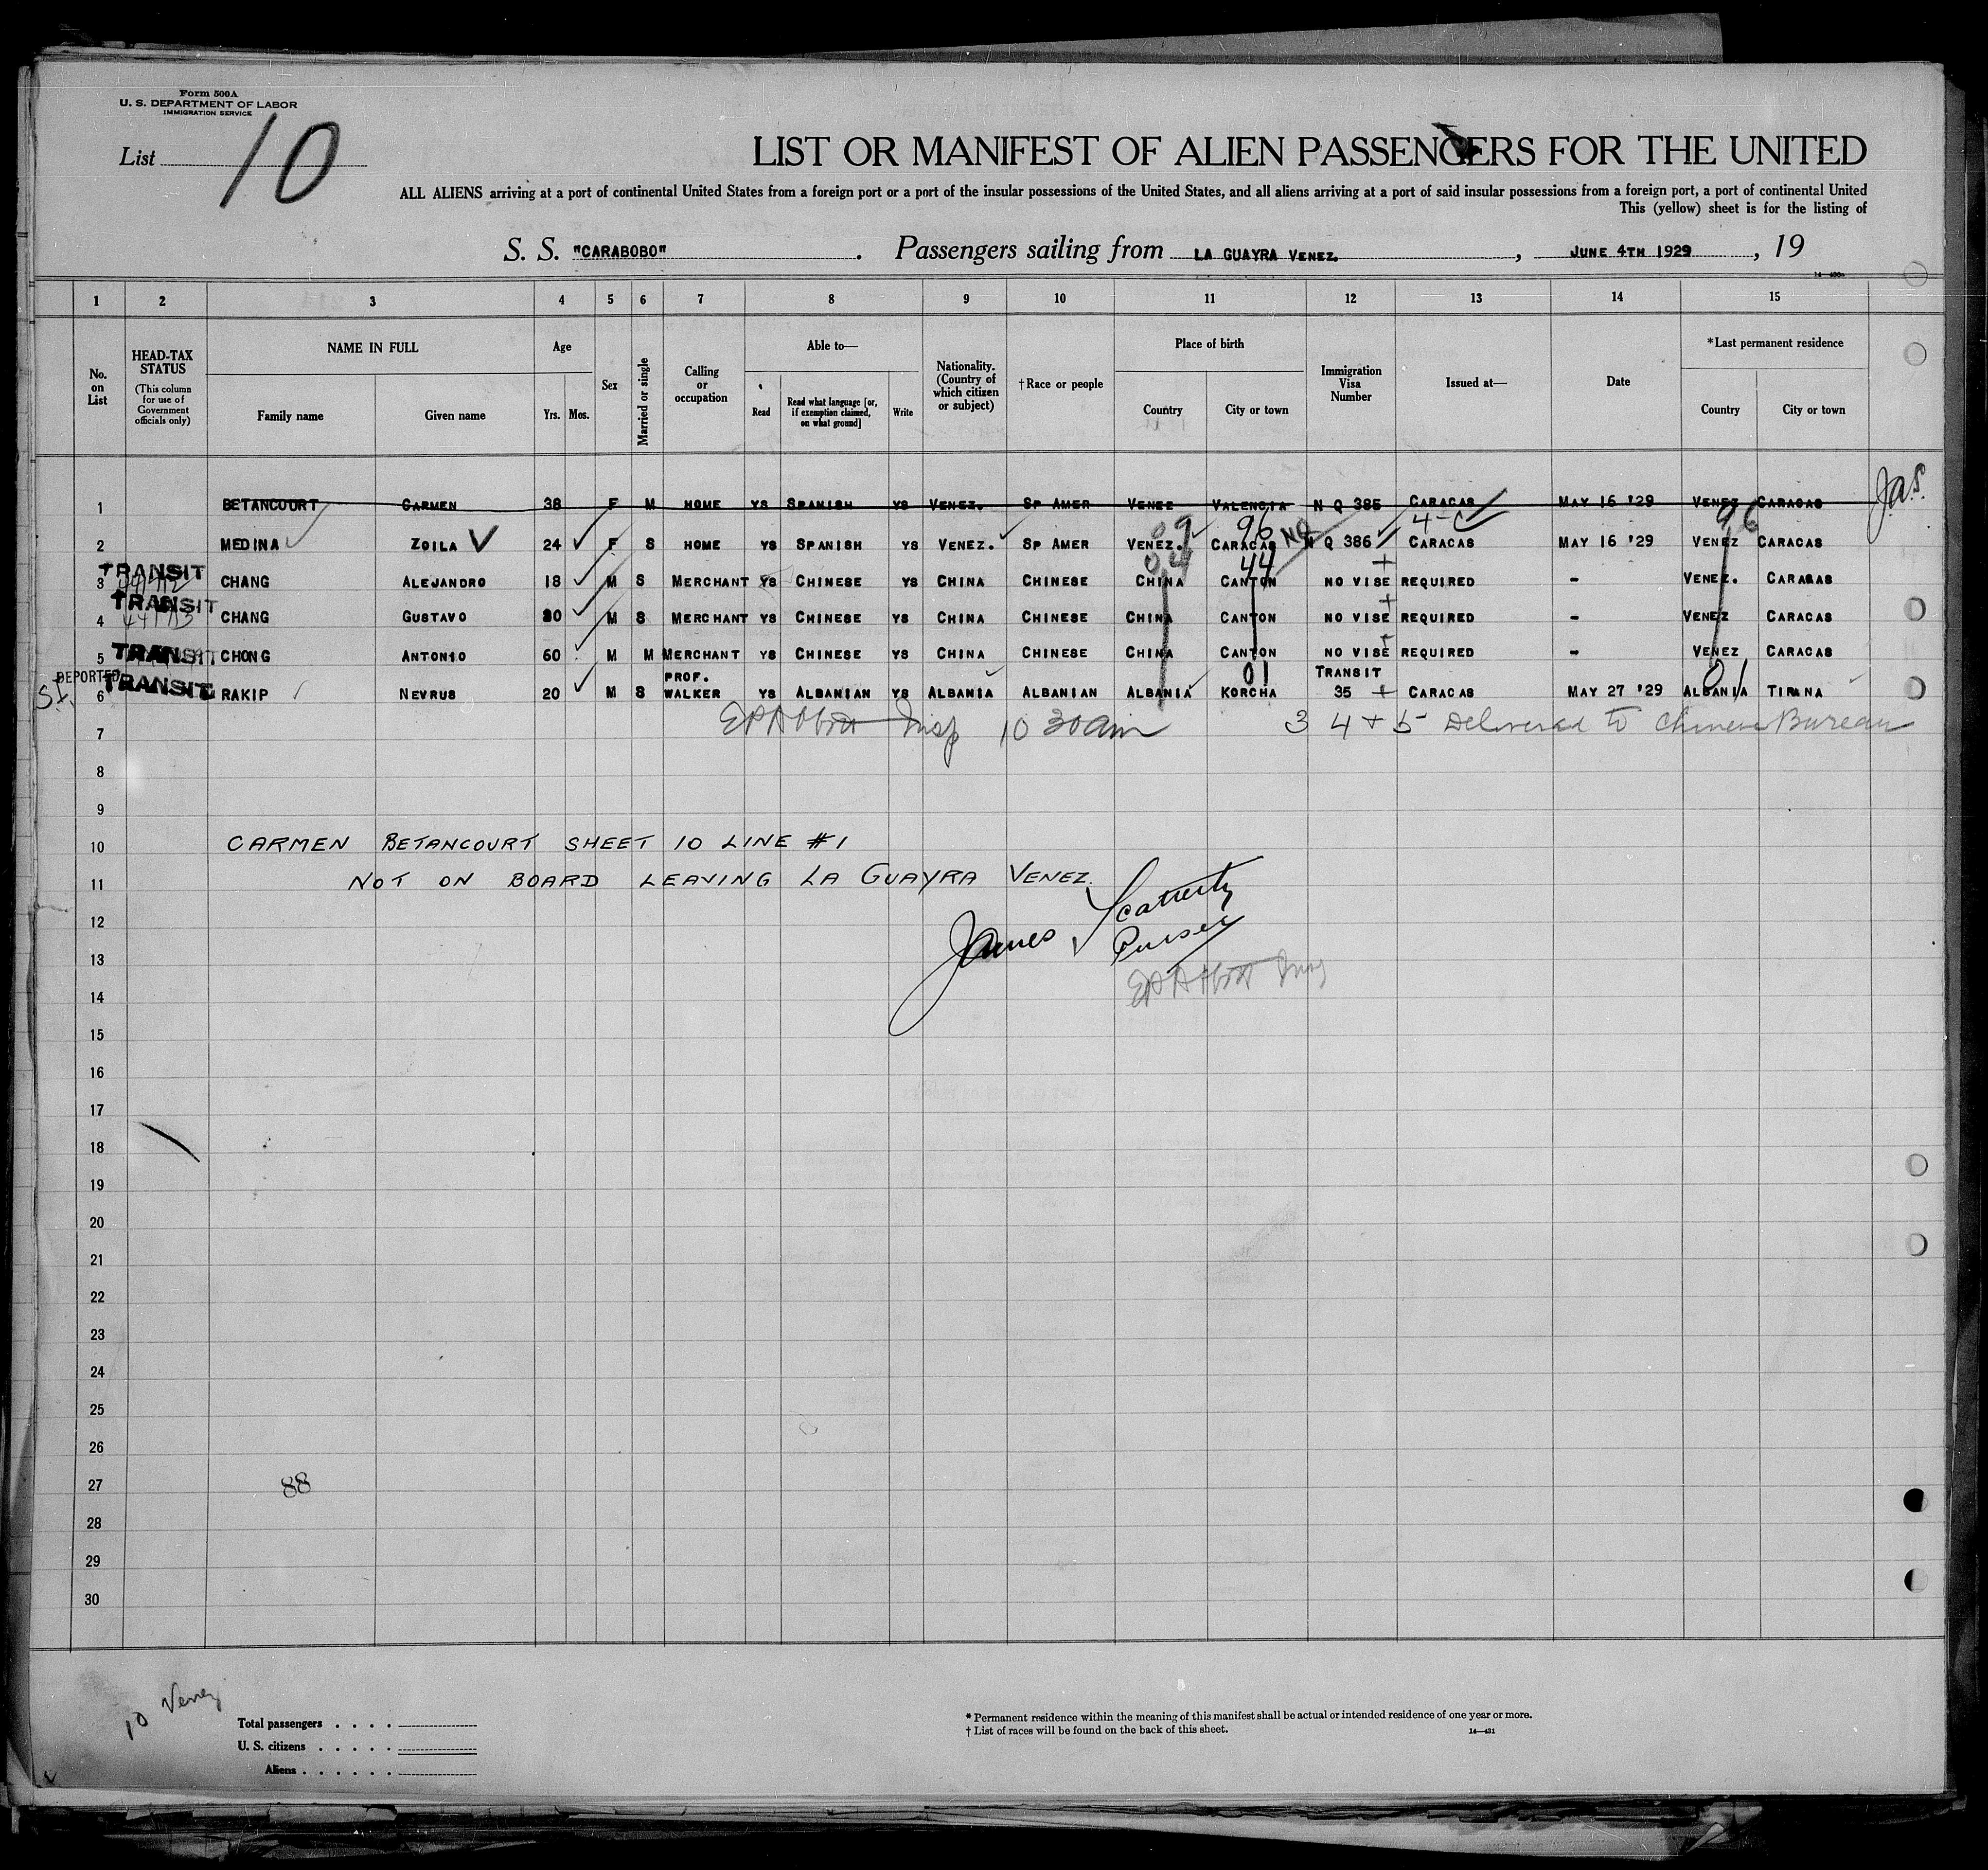 Form 500A
U. S. DEPARTMENT OF LABOR
IMMIGRATION SERVICE
List 10
LIST OR MANIFEST OF ALIEN PASSENGERS FOR THE UNITED
ALL ALIENS arriving at a port of continental United States from a foreign port or a port of the insular possessions of the United States, and all aliens arriving at a port of said insular possessions from a foreign port, a port of continental United
This (yellow) sheet is for the listing of
S. S. "CARABOBO" . Passengers sailing from LA GUAYRA VENEZ. , JUNE 4TH 1929 , 19
1 2 3 4 5 6 7 8 9 10 11 12 13 14 15
No. on List
HEAD-TAX STATUS
(This column for use of Government officials only)
NAME IN FULL
Family name Given name
Age
Yrs. Mos.
Sex
Married or single
Calling or occupation
Able to—
Read
Read what language [or, if exemption claimed, on what ground]
Write
Nationality. (Country of which citizen or subject)
†Race or people
Place of birth
Country City or town
Immigration Visa Number
Issued at—
Date
*Last permanent residence
Country City or town
1 BETANCOURT CARMEN 38 F M HOME YS SPANISH YS VENEZ. SP AMER VENEZ VALENCIA N Q 385 CARACAS MAY 16 '29 VENEZ CARACAS Jas.
09 96 NQ 4-C 96
2 MEDINA ZOILA 24 F S HOME YS SPANISH YS VENEZ. SP AMER VENEZ. CARACAS N Q 386 CARACAS MAY 16 '29 VENEZ CARACAS
04 44
3 TRANSIT CHANG ALEJANDRO 18 M S MERCHANT YS CHINESE YS CHINA CHINESE CHINA CANTON NO VISE REQUIRED - VENEZ. CARACAS
4 TRANSIT CHANG GUSTAVO 20 M S MERCHANT YS CHINESE YS CHINA CHINESE CHINA CANTON NO VISE REQUIRED - VENEZ CARACAS
5 TRANSIT CHONG ANTONIO 60 M M MERCHANT YS CHINESE YS CHINA CHINESE CHINA CANTON NO VISE REQUIRED - VENEZ CARACAS
DEPORTED PROF. 01 TRANSIT 01
S.I. 6 TRANSIT RAKIP NEVRUS 20 M S WALKER YS ALBANIAN YS ALBANIA ALBANIAN ALBANIA KORCHA 35 CARACAS MAY 27 '29 ALBANIA TIRANA
7 Insp 10 30 am 3 4 + 5 Delivered to Chinese Bureau
8
9
10 CARMEN BETANCOURT SHEET 10 LINE #1
11 NOT ON BOARD LEAVING LA GUAYRA VENEZ.
12 James
13 Purser
14
15
16
17
18
19
20
21
22
23
24
25
26
27 88
28
29
30
10 Venez
Total passengers . . . .
U. S. citizens . . . . .
Aliens . . . . . .
* Permanent residence within the meaning of this manifest shall be actual or intended residence of one year or more.
† List of races will be found on the back of this sheet.
14—431